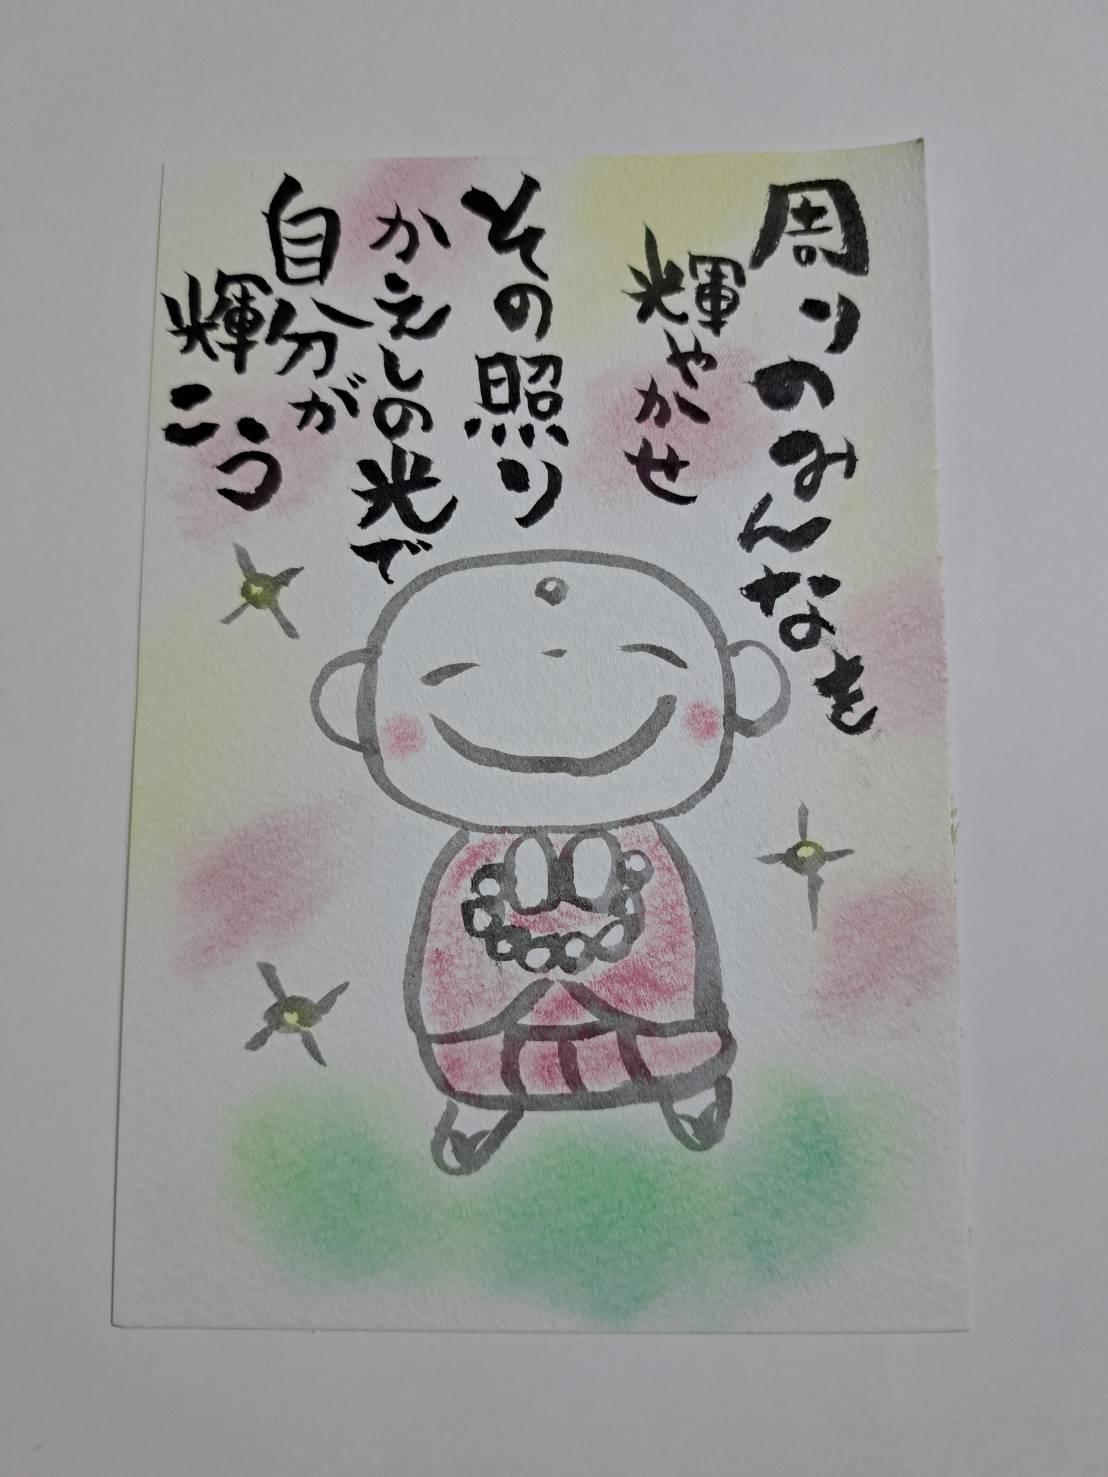 周りのみんなを
輝やかせ
その照り
かえしの光で
自分が
輝こう